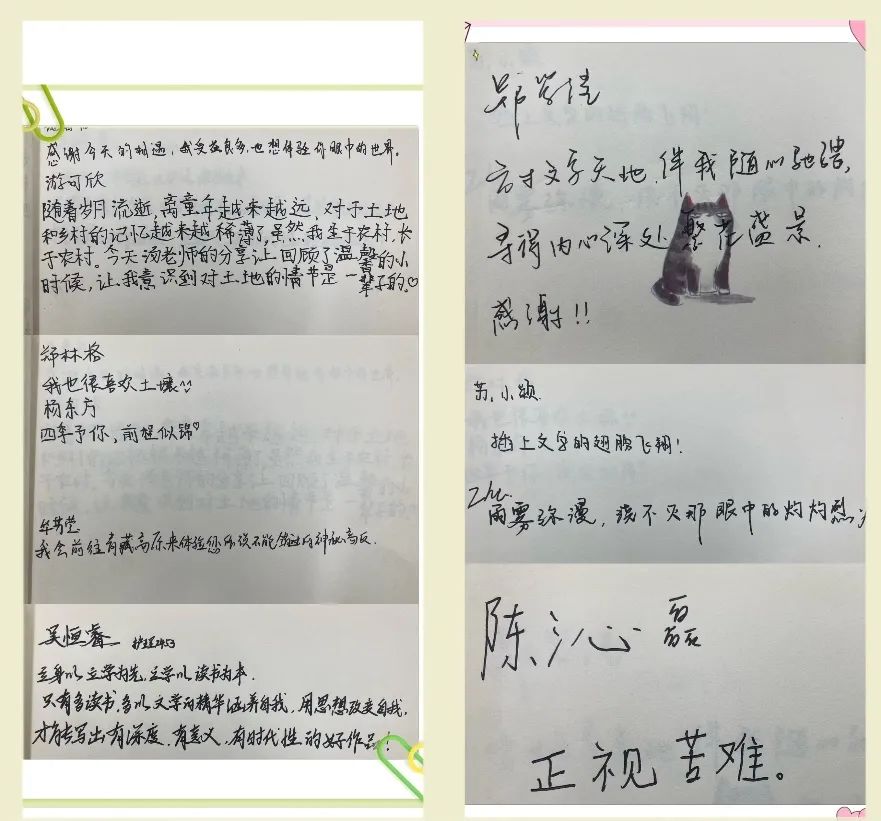 感谢今天的相遇，我受益良多，也想体验你眼中的世界。
游可欣
随着岁月流逝，离童年越来越远，对于土地
和乡村的记忆越来越稀薄了，虽然我生于农村，长
于农村。今天汤老师的分享让回顾了温馨的小
时候，让我意识到对土地的情节是一辈子的。♡
郑林格
我也很喜欢土壤
杨东方
四季予你，前程似锦♡
牟芳莹
我会前往青藏高原来体验您所说不能错过的神秘高反.
吴恒睿 护理2453
立身以立学为先，立学以读书为本.
只有多读书，多以文学的精华涵养自我，用思想改变自我，
才能写出有深度，有意义，有时代性的好作品！
方寸文字天地，伴我随心驰骋，
寻得内心深处繁花盛景.
感谢!!
苏小颖
插上文字的翅膀飞翔！
Zhu.
雨雾弥漫，浇不灭那眼中的灼灼烈
陈沁磊
正视苦难。